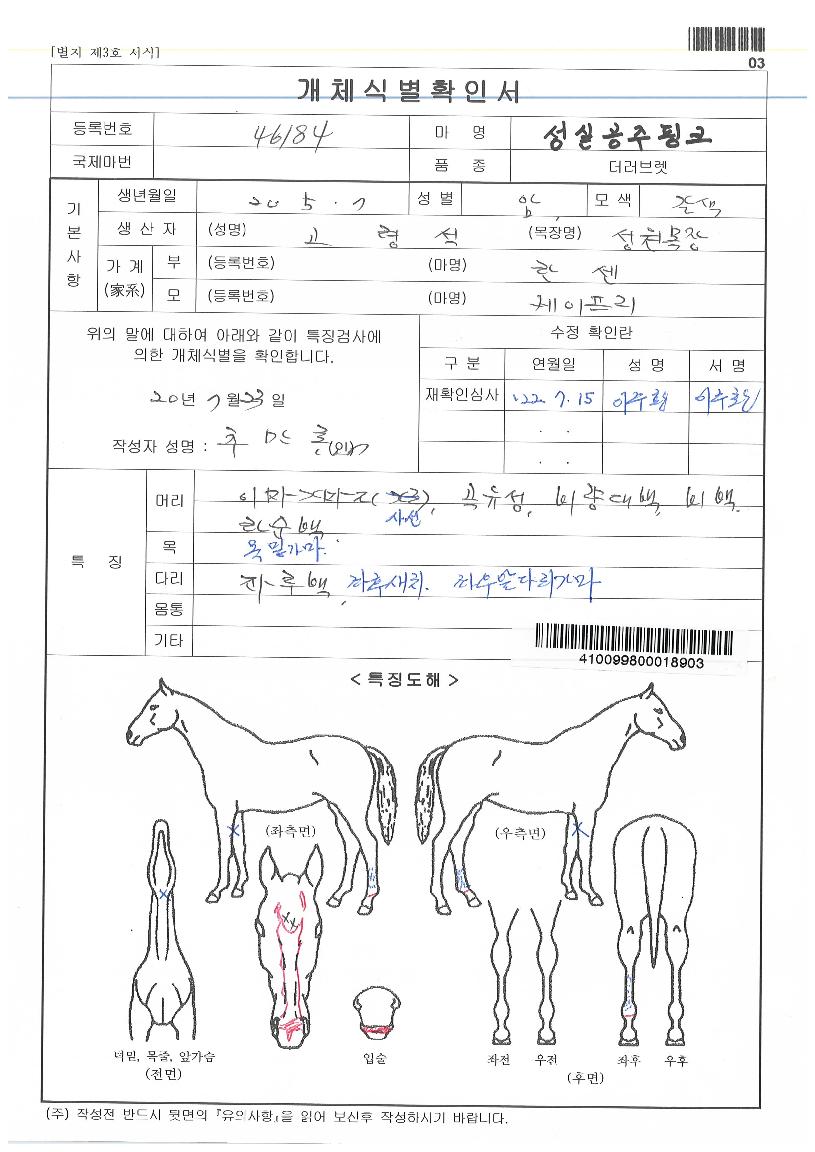 [별지 제3호 서식]
03
개체식별확인서
등록번호 46184 마 명 성실공주핑크
국제마번 품 종 더러브렛
기본사항
생년월일 20 5 . 7 성 별 암 모 색 갈색
생 산 자 (성명) 고 령 석 (목장명) 성진목장
가 계 (家系)
부 (등록번호) (마명) 한 센
모 (등록번호) (마명) 제이프리
위의 말에 대하여 아래와 같이 특징검사에
의한 개체식별을 확인합니다.
20년 7월 23일
작성자 성명 :
수정 확인란
구 분 연월일 성 명 서 명
재확인심사 '22. 7. 15
. .
. .
특 징
머리 곡유성, 비량대백, 비백
사선
목 목밑가마.
다리 좌후새치. 좌우앞다리가마
몸통
기타
410099800018903
< 특징도해 >
(좌측면)
(우측면)
턱밑, 목줄, 앞가슴
(전면)
입술
좌전 우전 좌후 우후
(후면)
(주) 작성전 반드시 뒷면의 『유의사항』을 읽어 보신후 작성하시기 바랍니다.